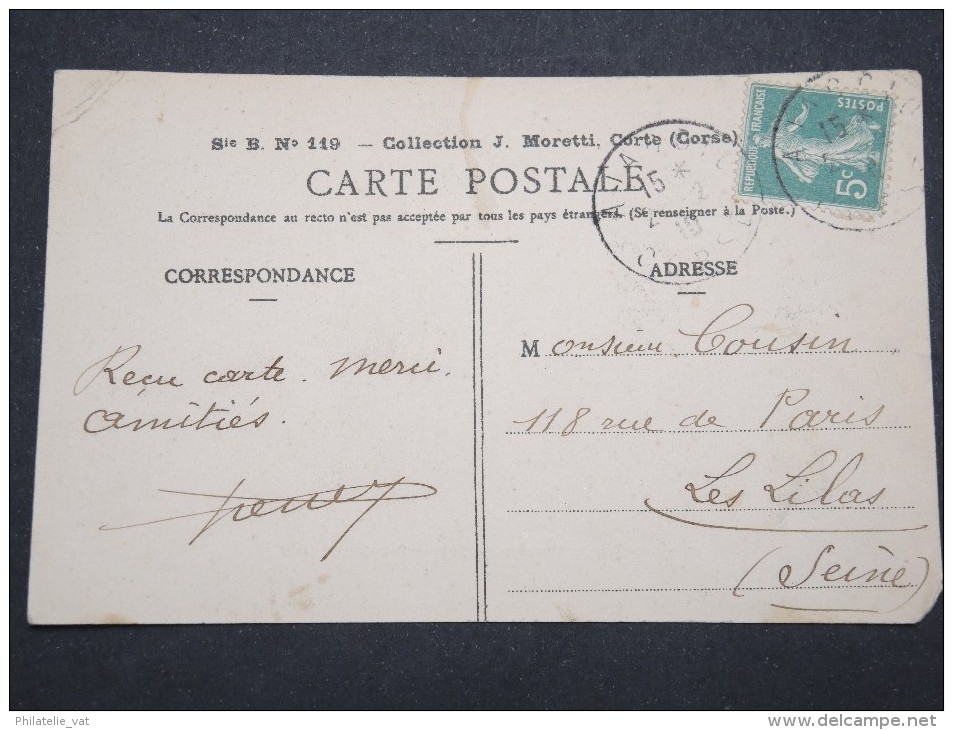 Sie B. No 119 — Collection J. Moretti, Corte (Corse)
CARTE POSTALE
La Correspondance au recto n'est pas acceptée par tous les pays étrangers. (Se renseigner à la Poste.)
REPUBLIQUE FRANÇAISE
POSTES
5c
15 *
CORRESPONDANCE
Reçu carte. merci.
amitiés.
ADRESSE
Monsieur Cousin
118 rue de Paris
Les Lilas
(Seine)
Philatelie_vat
delcampe.net